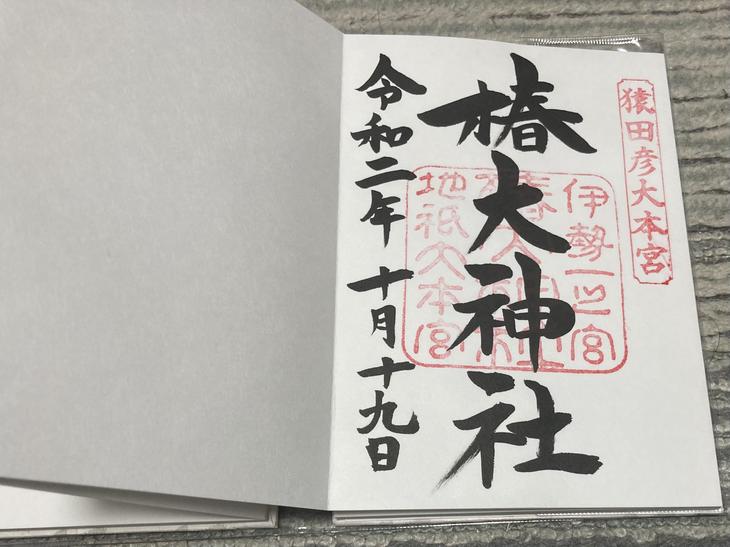 猿田彦大本宮
椿大神社
伊勢一之宮
椿大神社
地祇大本宮
令和二年 十月十九日